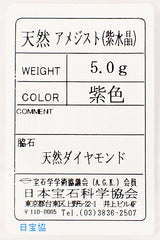 天然 アメジスト(紫水晶)
WEIGHT 5.0g
COLOR 紫色
COMMENT
脇石
天然ダイヤモンド
宝石学学術協議会(A.G.K.)会員
日本宝石科学協会
東京都台東区上野5-22-1 井上ビル4F
〒110-0005 Tel.(03)3836-2507
日宝協